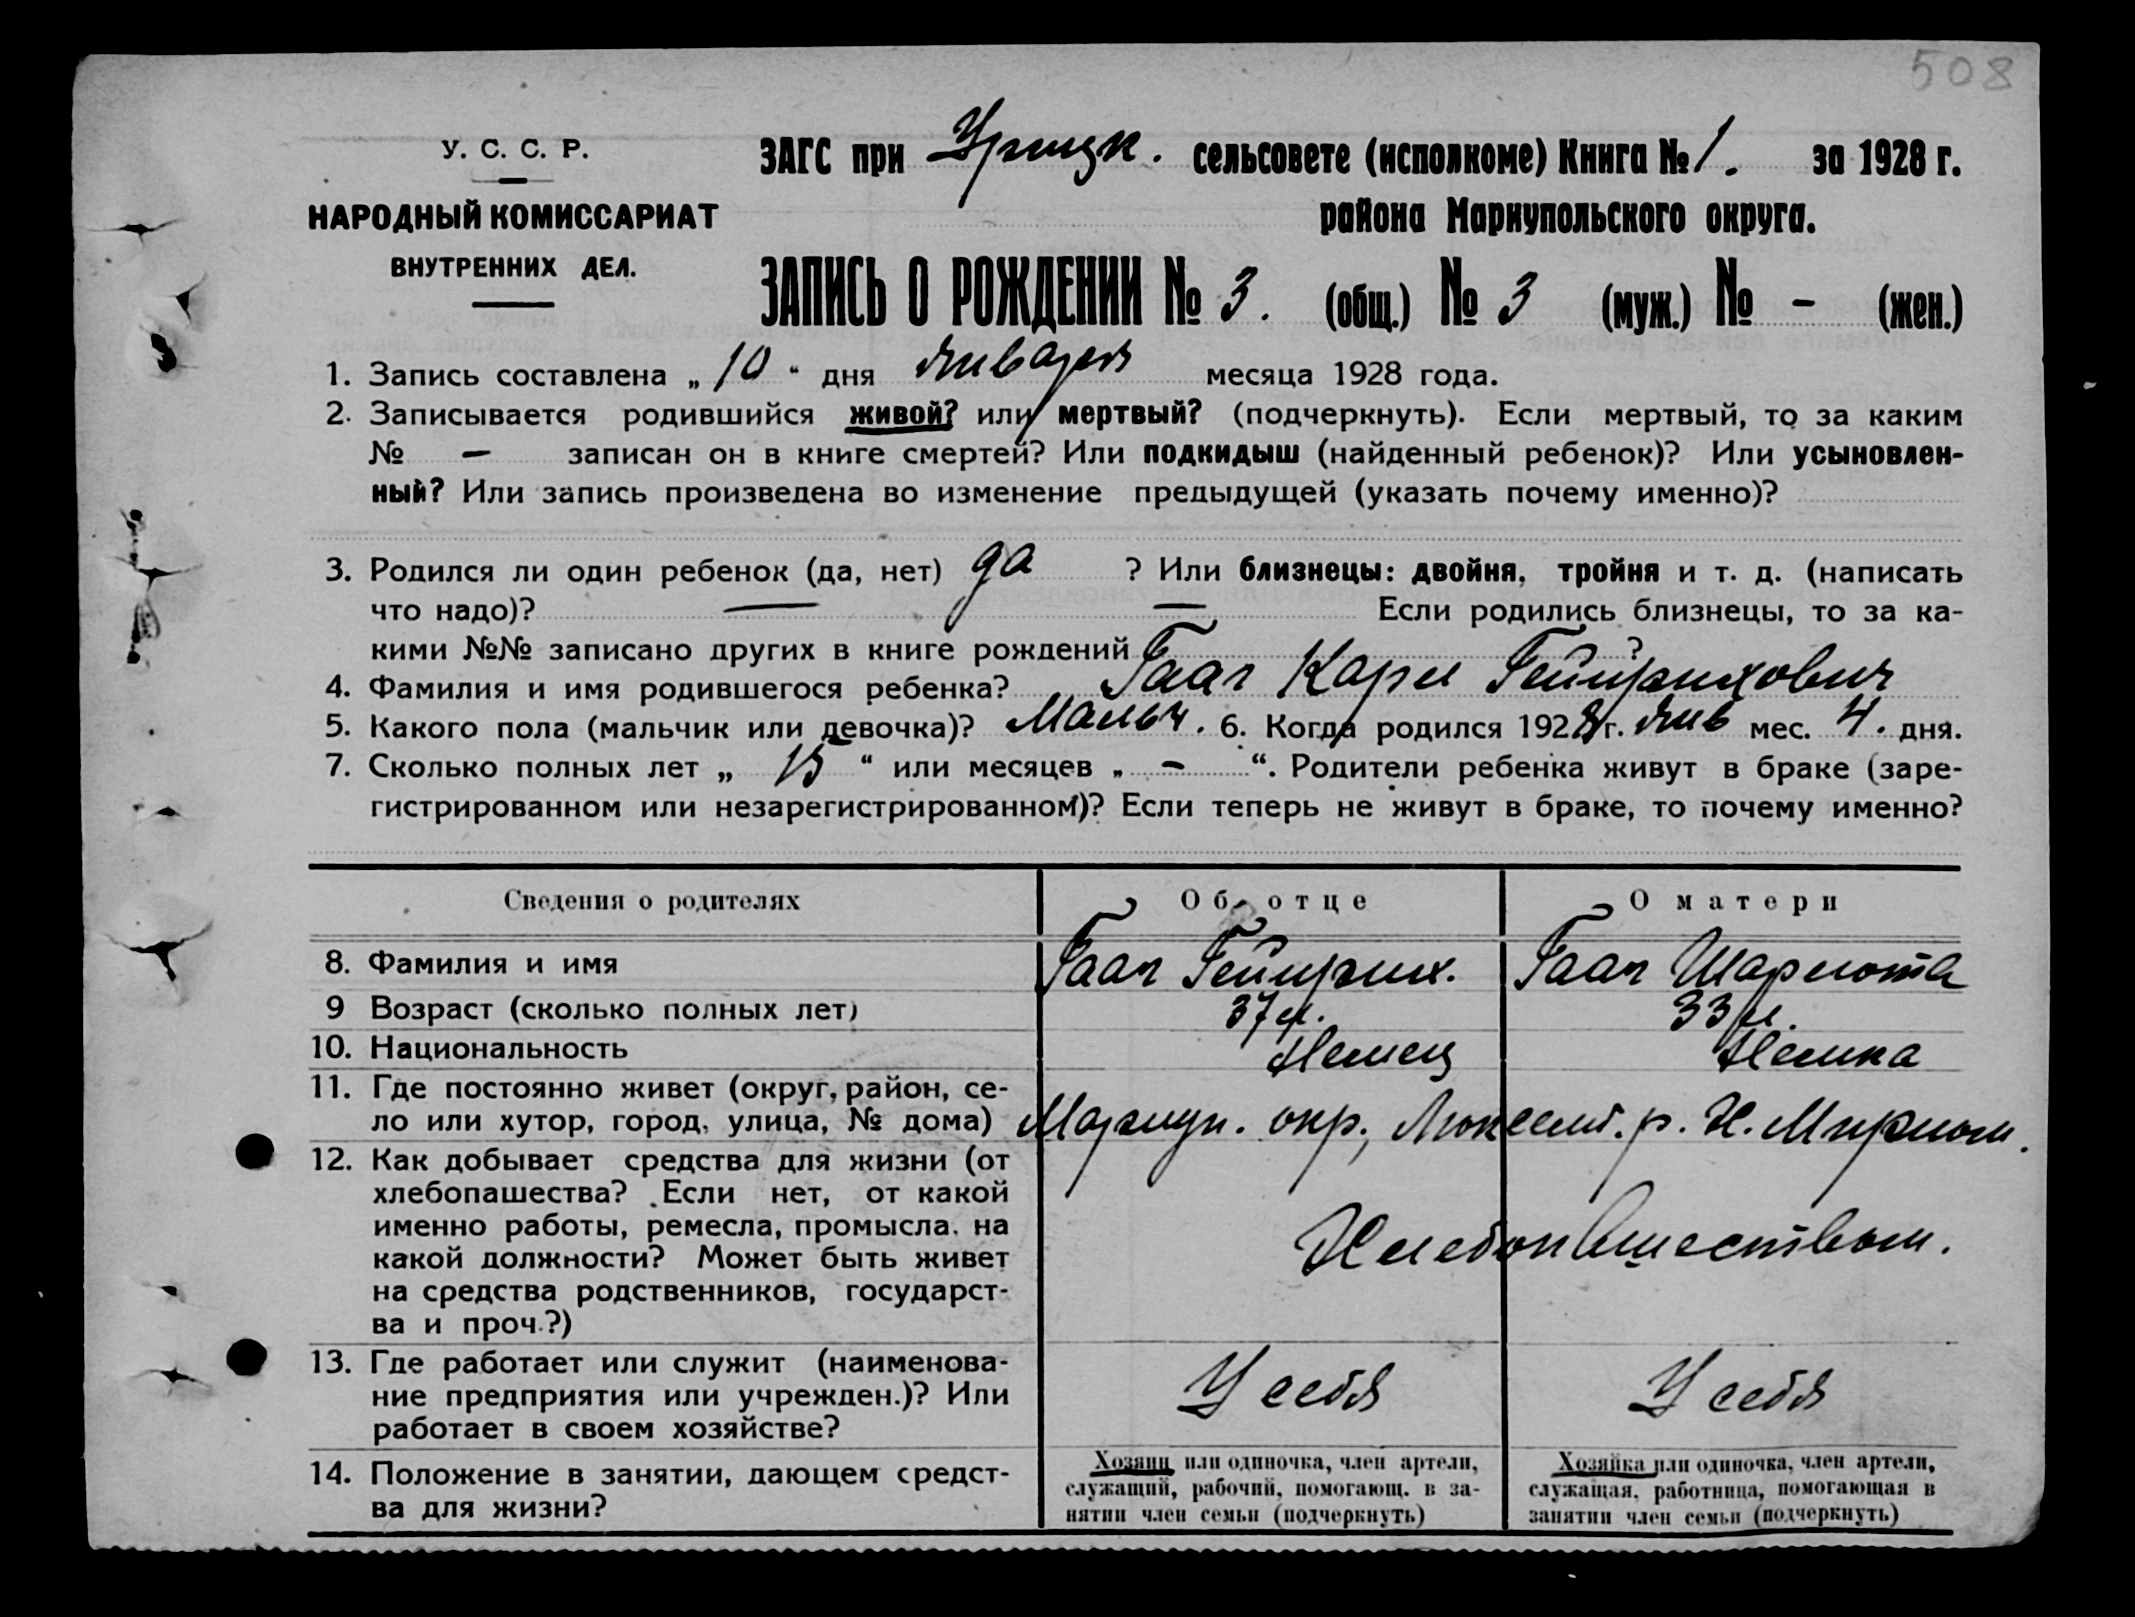 508
У. С. С. Р.
НАРОДНЫЙ КОМИССАРИАТ
ВНУТРЕННИХ ДЕЛ.
ЗАГС при Урицк. сельсовете (исполкоме) Книга № 1. за 1928 г.
района Мариупольского округа.
ЗАПИСЬ О РОЖДЕНИИ № 3. (общ.) № 3 (муж.) № - (жен.)
1. Запись составлена „ 10 “ дня января месяца 1928 года.
2. Записывается родившийся живой? или мертвый? (подчеркнуть). Если мертвый, то за каким
№ — записан он в книге смертей? Или подкидыш (найденный ребенок)? Или усыновлен-
ный? Или запись произведена во изменение предыдущей (указать почему именно)?
3. Родился ли один ребенок (да, нет) да ? Или близнецы: двойня, тройня и т. д. (написать
что надо)? — — Если родились близнецы, то за ка-
кими №№ записано других в книге рождений ?
4. Фамилия и имя родившегося ребенка? Гаап Карл Гейнрихович
5. Какого пола (мальчик или девочка)? Мальч. 6. Когда родился 1928 г. янв мес. 4. дня.
7. Сколько полных лет „ 15 “ или месяцев „ - “. Родители ребенка живут в браке (заре-
гистрированном или незарегистрированном)? Если теперь не живут в браке, то почему именно?
Сведения о родителях Об отце О матери
8. Фамилия и имя Гаап Гейнрих. Гаап Шарлота
9 Возраст (сколько полных лет) 37 л. 33 л.
10. Национальность Немец Немка
11. Где постоянно живет (округ, район, се-
ло или хутор, город, улица, № дома) Мариуп. окр., Люксемб. р. К.
12. Как добывает средства для жизни (от
хлебопашества? Если нет, от какой
именно работы, ремесла, промысла, на
какой должности? Может быть живет
на средства родственников, государст-
ва и проч.?)
Хлебопашеством.
13. Где работает или служит (наименова-
ние предприятия или учрежден.)? Или
работает в своем хозяйстве?
У себя У себя
14. Положение в занятии, дающем средст-
ва для жизни?
Хозяин или одиночка, член артели,
служащий, рабочий, помогающ. в за-
нятии член семьи (подчеркнуть)
Хозяйка или одиночка, член артели,
служащая, работница, помогающая в
занятии член семьи (подчеркнуть)